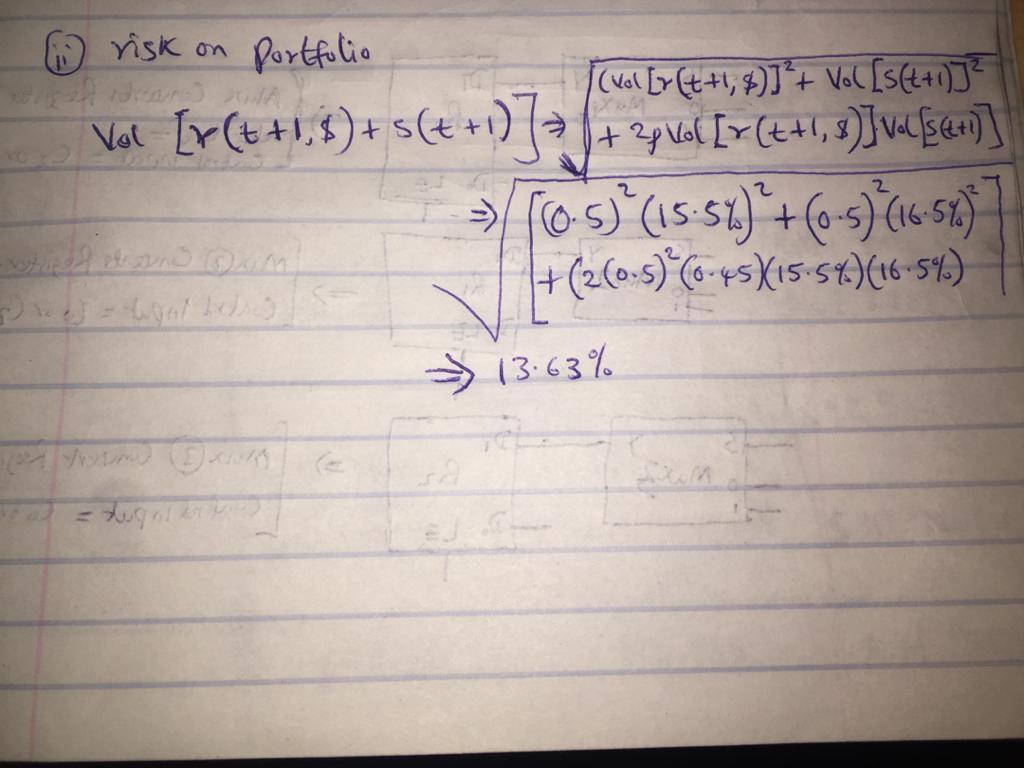 (ii) risk on portfolio
Vol [r(t+1,$) + s(t+1)] ⇒ √(Vol[r(t+1,$)]² + Vol[s(t+1)]²
+ 2ρ Vol[r(t+1,$)].Vol[s(t+1)]
⇒ √[(0.5)²(15.5%)² + (0.5)²(16.5%)²
+ (2(0.5)²(0.45)(15.5%)(16.5%)]
⇒ 13.63%